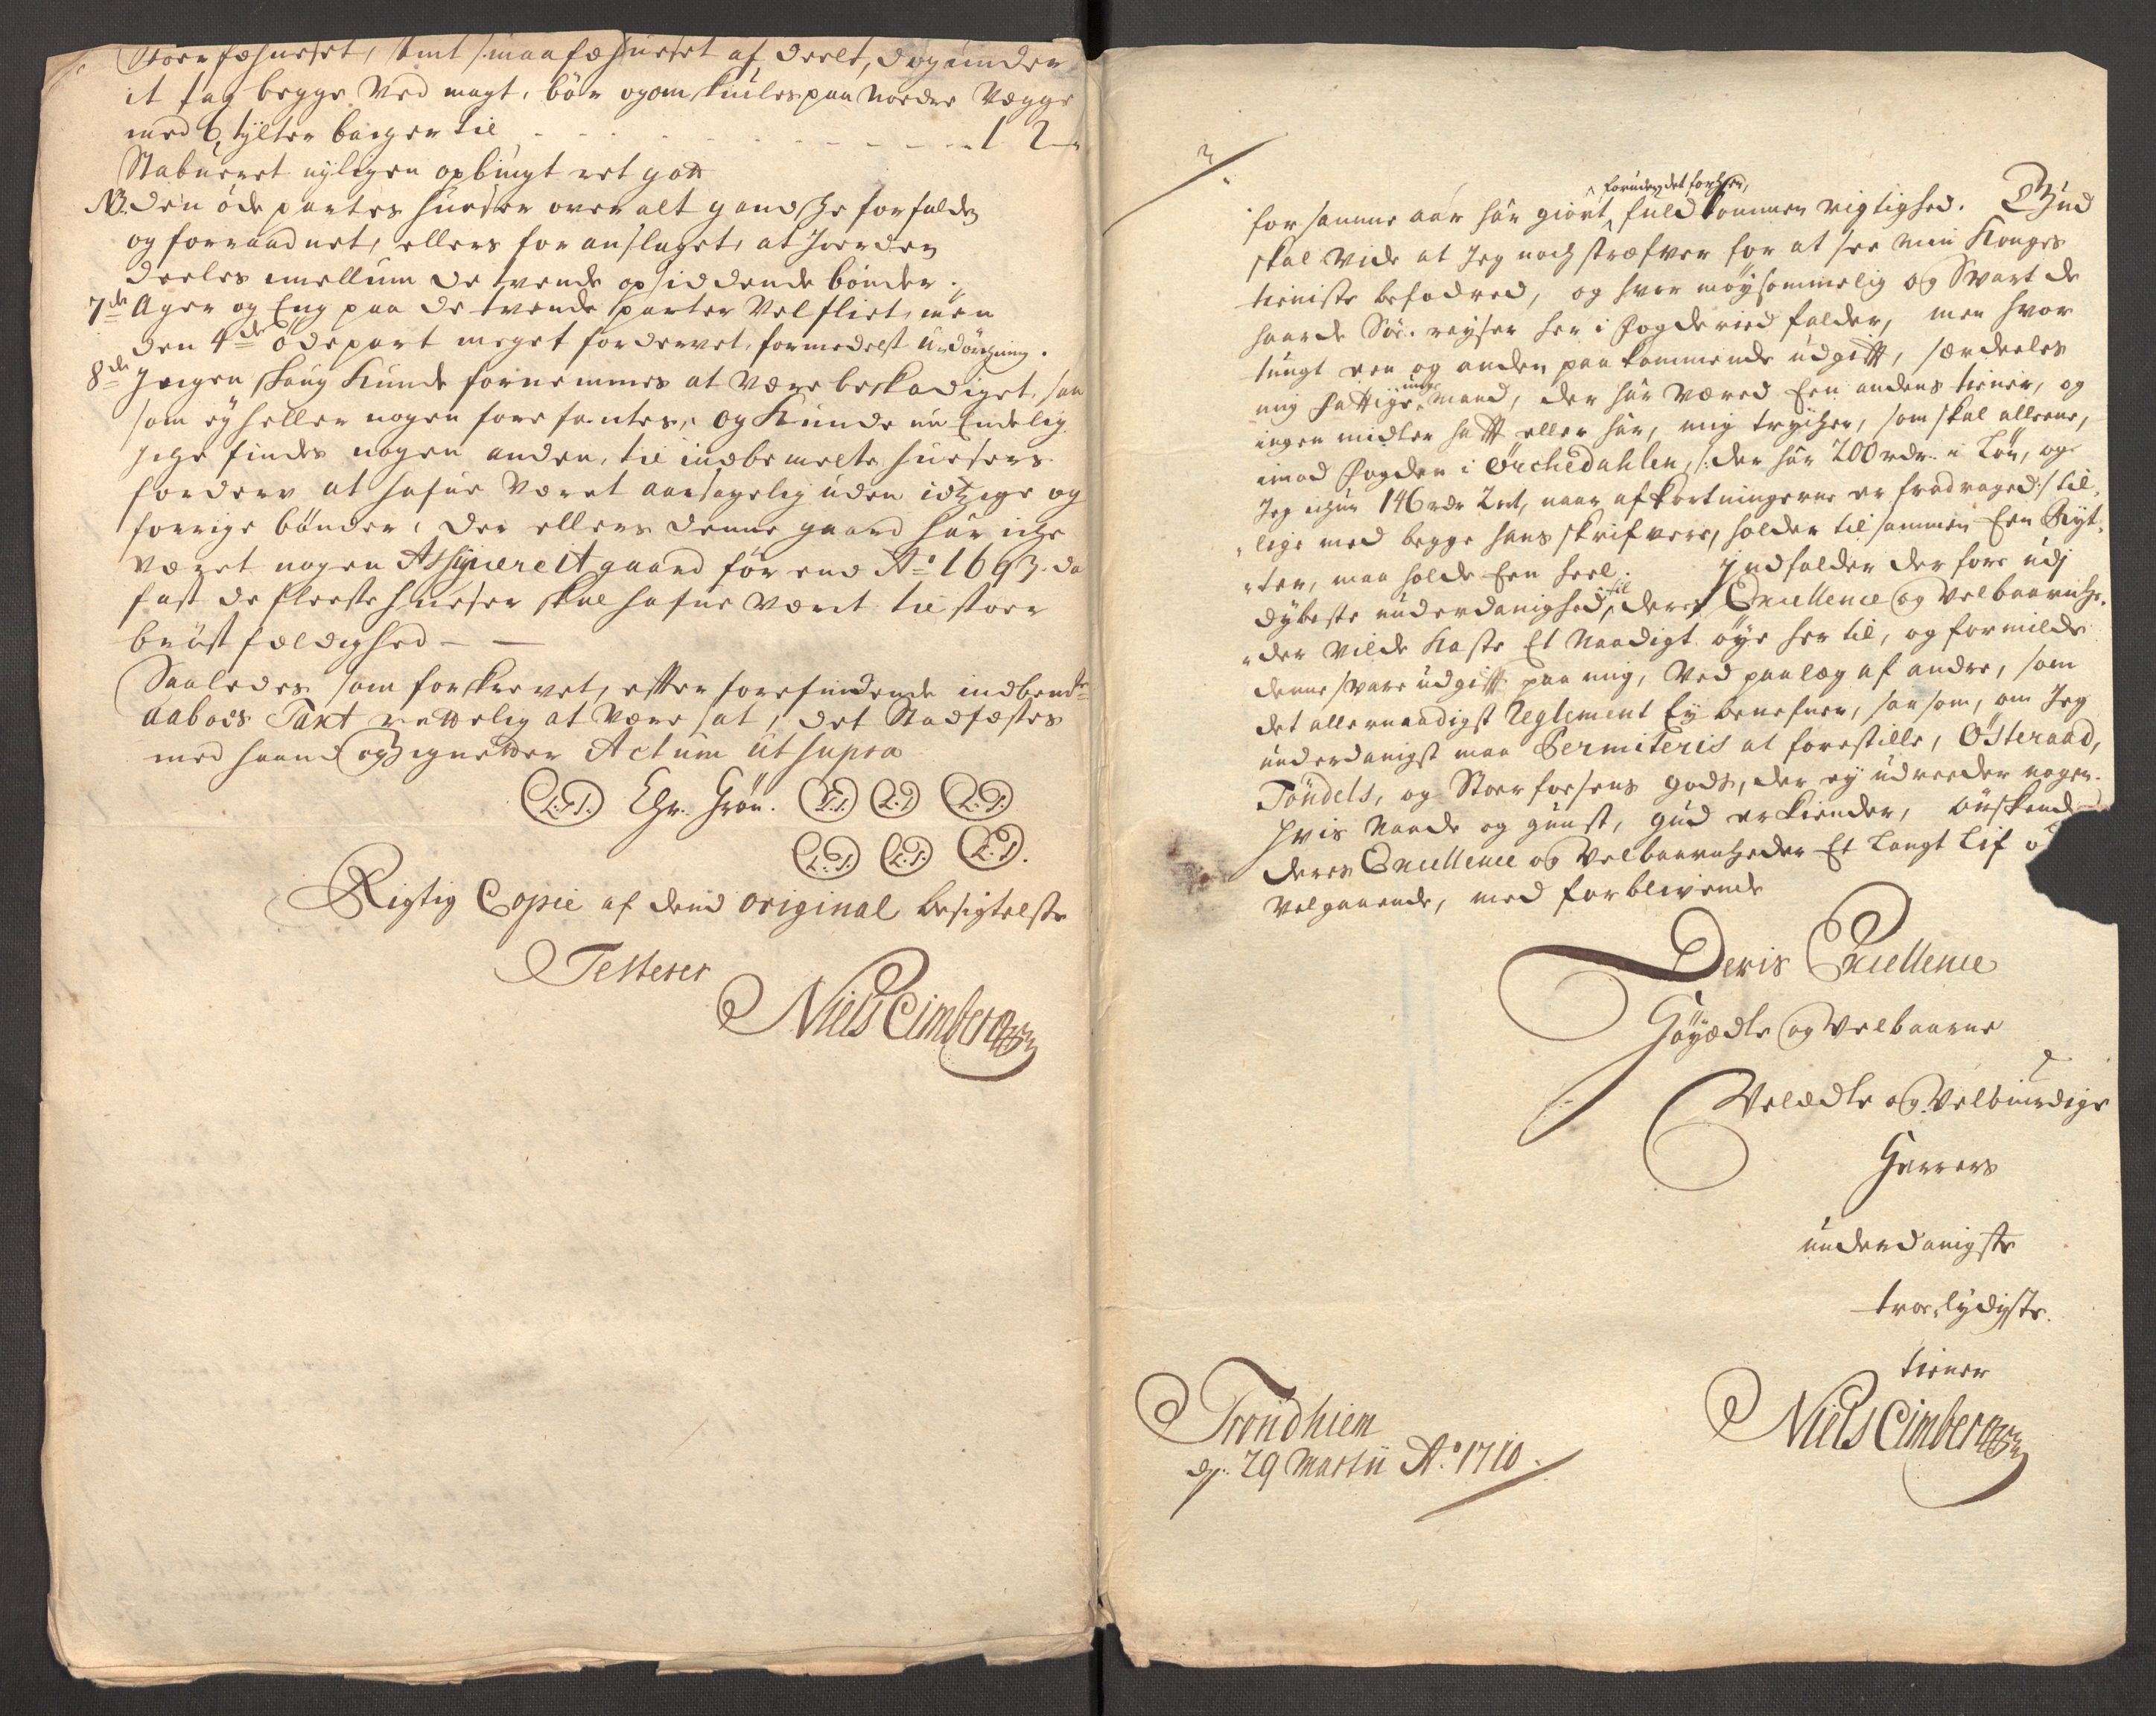 Stoer fæhuuset, samt smaafæhuuset af deelt, dog under
it tag begge ved magt, bör og omskiules paa nordre Vægge
med 6 tylter barger til - - - - - - 1 2 -
Stabuuret nyligen opbiugt ret gott
NB. den öde partes huuser over alt gandske forfalden
og forraadnet, ellers for anslaget, at Jorden
deeles imellum de tvende opsiddende bönder.
7de Ager og Eng paa de tvende parter Velfliet, men
den 4de öde part meget fordervet, formedelst Urdörgning.
8de Jngen skoug Kunde fornemmes at være beskadiget, saa
som ey heller nogen forefantes, og Kunde nu Endelig
Jche findes nogen anden, til indbemelte huusers
forderv at hafue været aarsagelig uden idtzige og
forrige bönder, der ellers denne gaard har iche
været nogen Assignereit gaard för end Ao 1693. da
fast de fleeste huuser skal hafue været til stoer
bröstfældighed - -
Saaledes som forskrevet, efter forefindende indbemte
aaboes Taxt rettelig at være sat, det Stadfæstes
med haand og Signetter Actum ut supra
L.S. Chr. Grön. L.S. L.S. L.S.
L.S. L.S. L.S.
Rigtig Copie af dend original besigtelse
Testerer
Niels Cimber

for samme aar har giort ^foruden det forhen, fuldkommen rigtighed. Gud
skal vide at Jeg noch stræfver for at see min Konges
tieniste befodred, og hvor möysommelig og Svart de
haarde Söe-reyser her i Fogderied falder, men hvor
tungt een og anden paakommende udgift, særdeeles
mig fattige unge mand, der har væred Een andens tiener, og
ingen midler haft eller har, mig trycher, som skal alleene,
imod Fogden i Örchedahlen, /: der har 200 rdr i Lön, og
Jeg ichun 146 rdr 2 ort, naar afkortningerne er fradraged:/ til
lige med begge hans skrifvere, holder tilsammen Een Ryt-
ter, maa holde Een heel. Jndfalder derfore udj
dybeste underdanighed, til deres Excellence og Velbaarnhe-
der vilde Kaste Et Naadigt öye hertil, og formilde
denne svare udgift paa mig, ved paalæg af andre, som
det allernaadigst Reglement Ey benefner, saasom, om Jeg
underdanigst maa Permiteris at forestille, Österaad,
Töndels, og Stoerfosens gods, der ey udreeder noget.
Hvis Naade og gunst, gud erkiender, önskend
deres Excellence og Velbaarnheder Et Langt Lif o
velgaaende, med forblivende
Deris Excellence
Höyædle og Velbaarne
Velædle og Velbiurdige
Herrers
underdanigste
troe-lydigste.
tiener
Niels Cimber
Trondhiem
d. 29 Martii Ao. 1710.